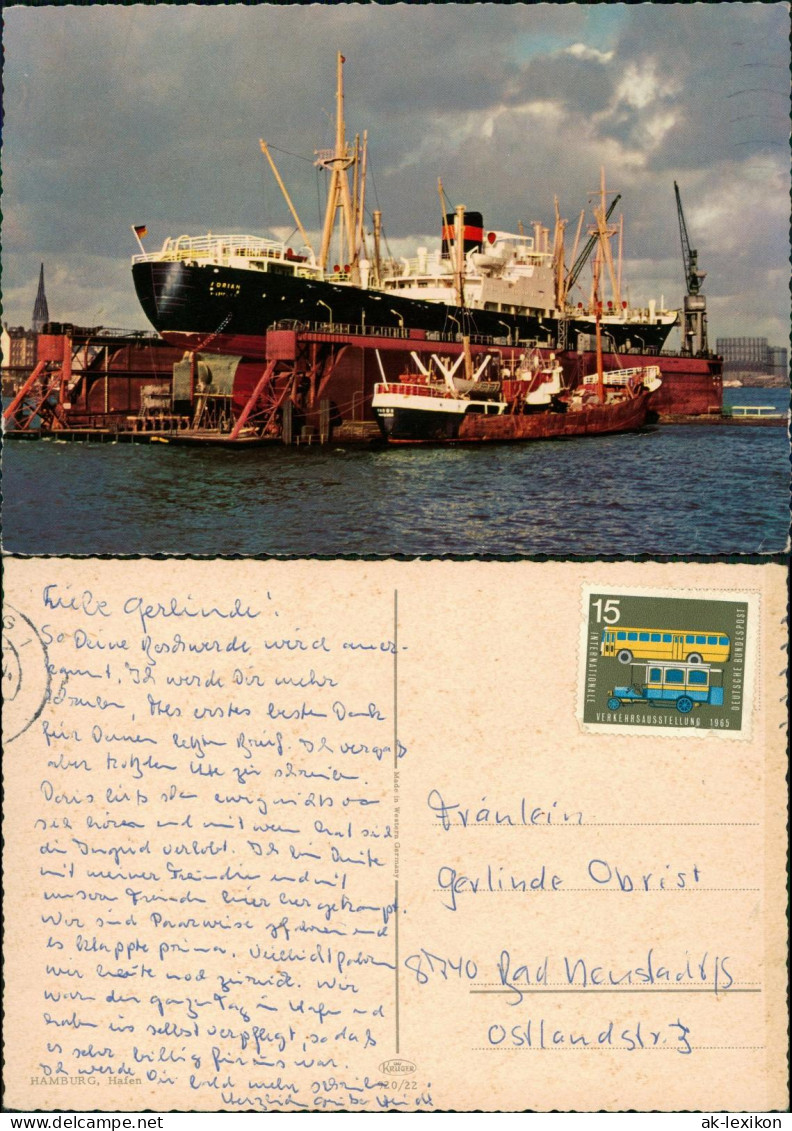 Liebe Gerlinde!
So Deine Beschwerde wird aner-
kannt. Ich werde Dir mehr
schreiben. Alles erstes besten Dank
für Deinen letzten Brief. Ich vergaß
aber trotzdem zu schreiben.
Doris läßt ewig nichts von
sich hören und mit wem hat sich
die Ingrid verlobt. Ich bin heute
mit meiner Freundin und mit
unserem Freund hier her getrampt.
Wir sind Paarweise gefahren und
es klappte prima. Vielleicht fahren
wir heute noch zurück. Wir
waren den ganzen Tag im Hafen und
haben uns selbst verpflegt, so daß
es sehr billig für uns war.
Ich werde Dir bald mehr schreiben
Herzliche Grüße Heidi
HAMBURG, Hafen
KRÜGER
920/22
Made in Western Germany
15
INTERNATIONALE
VERKEHRSAUSSTELLUNG 1965
DEUTSCHE BUNDESPOST
Fräulein
Gerlinde Obrist
8740 Bad Neustadt/S
Ostlandstr. 3
ak-lexikon